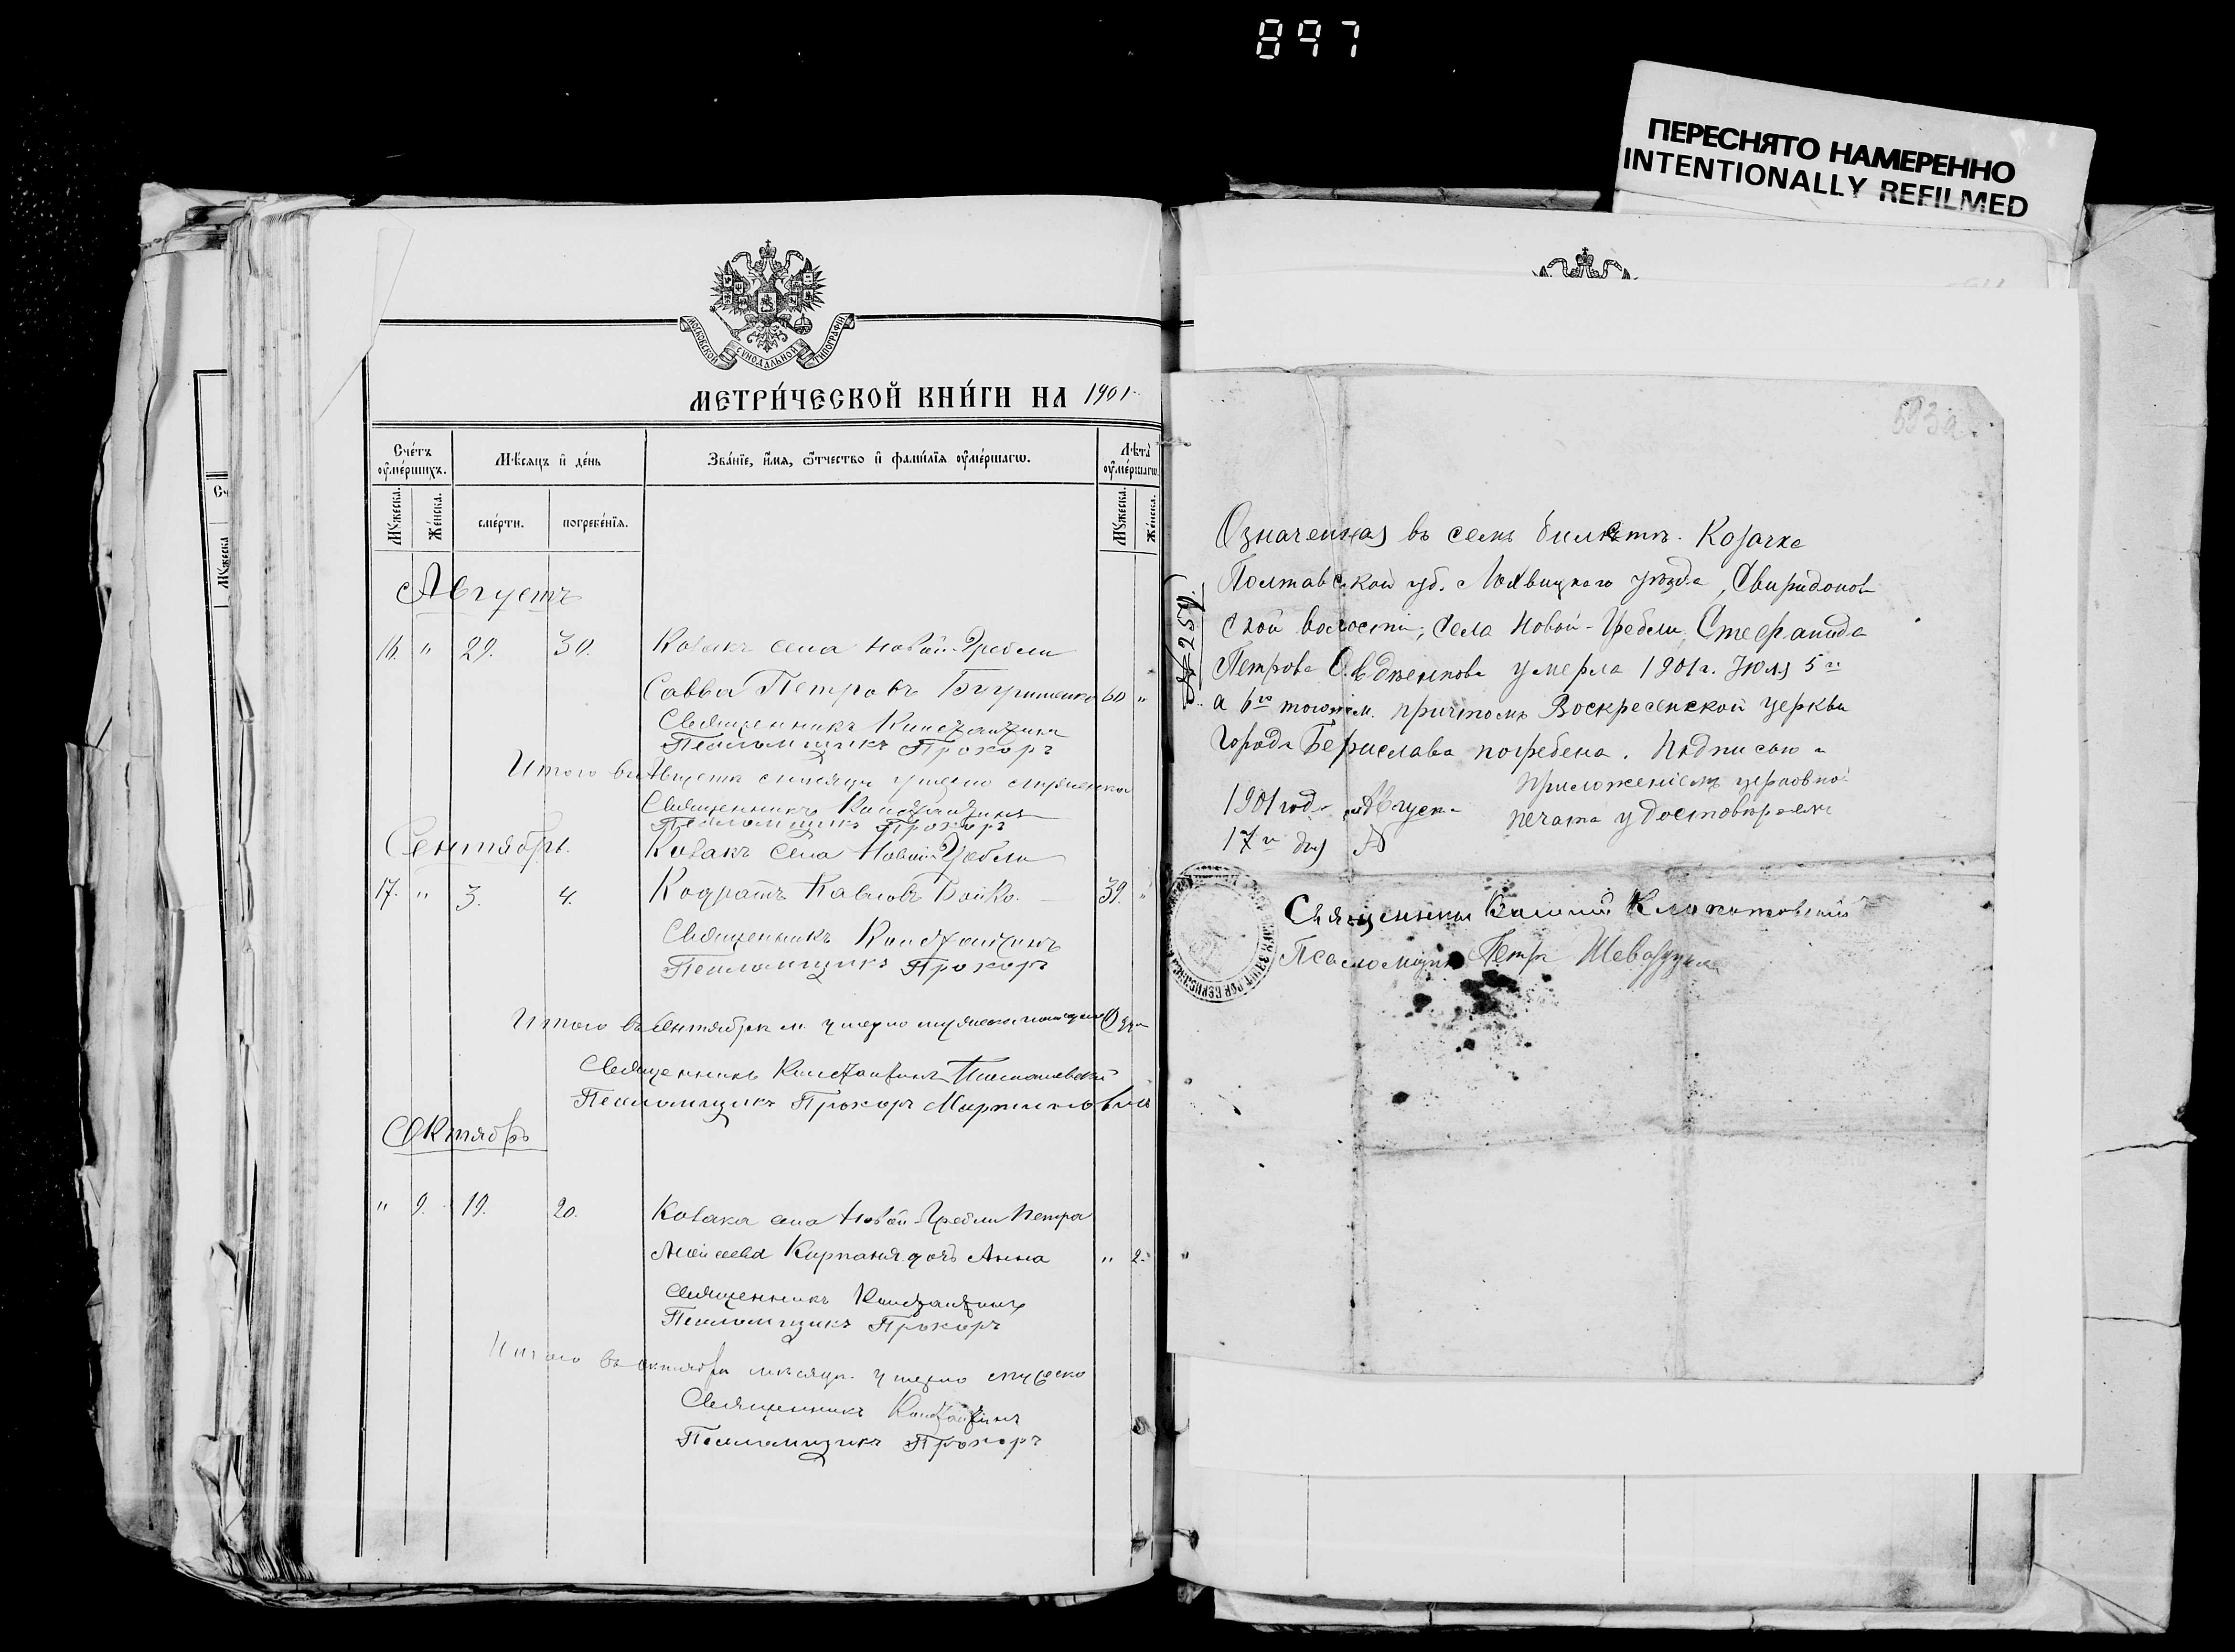 897
ПЕРЕСНЯТО НАМЕРЕННО
INTENTIONALLY REFILMED
МОСКОВСКОЙ СѴНОДАЛЬНОЙ ТИПОГРАФІИ
МЕТРИ́ЧЕСКОЙ КНИ́ГИ НА 1901
Сче́тъ оу҆ме́ршихъ.
Мѣ́сяцъ и҆ де́нь
Зва́нїе, и҆́мя, ѻ҆́тчество и҆ фами́лїя оу҆ме́ршагѡ.
Лѣ́та оу҆ме́ршагѡ.
Мꙋ́жеска.
Же́нска.
сме́рти.
погребе́нїя.
Мꙋ́жеска.
Же́нска.
Августъ
16. " 29. 30. Козакъ села Новой-Гребли
Савва Петровъ 60 "
Священникъ Константинъ
Псаломщикъ Прохоръ
Итого въ Августѣ мѣсяцѣ умерло
Священникъ Константинъ
Псаломщикъ Прохоръ
Сентябрь.
Козакъ села Новой-Гребли
17. " 3. 4. Кодратъ Павловъ Бойко. 39. "
Священникъ Константинъ
Псаломщикъ Прохоръ
Итого въ Сентябрѣ м. умерло
Священникъ Константинъ
Псаломщикъ Прохоръ Мартиновичъ
Октябрь
" 9. 19. 20. Козака села Новой-Гребли Петра
Моисеева дочь Анна " 2
Священникъ Константинъ
Псаломщикъ Прохоръ
Итого въ октябрѣ мѣсяцѣ умерло
Священникъ Константинъ
Псаломщикъ Прохоръ
593а
№ 259.
Означенная въ семъ билетѣ Козачка
Полтавской губ. Лохвицкаго уѣзда, Свиридонов
ской волости, села Новой-Гребли, Стефанида
Петрова умерла 1901 г. Іюля 5го
а 6го того же м. причтомъ Воскресенской церкви
города Берислава погребена. Подписью и
приложеніемъ церковной
печати удостовѣряемъ
1901 года Августа
17го дня
Священникъ
Псаломщикъ Петръ